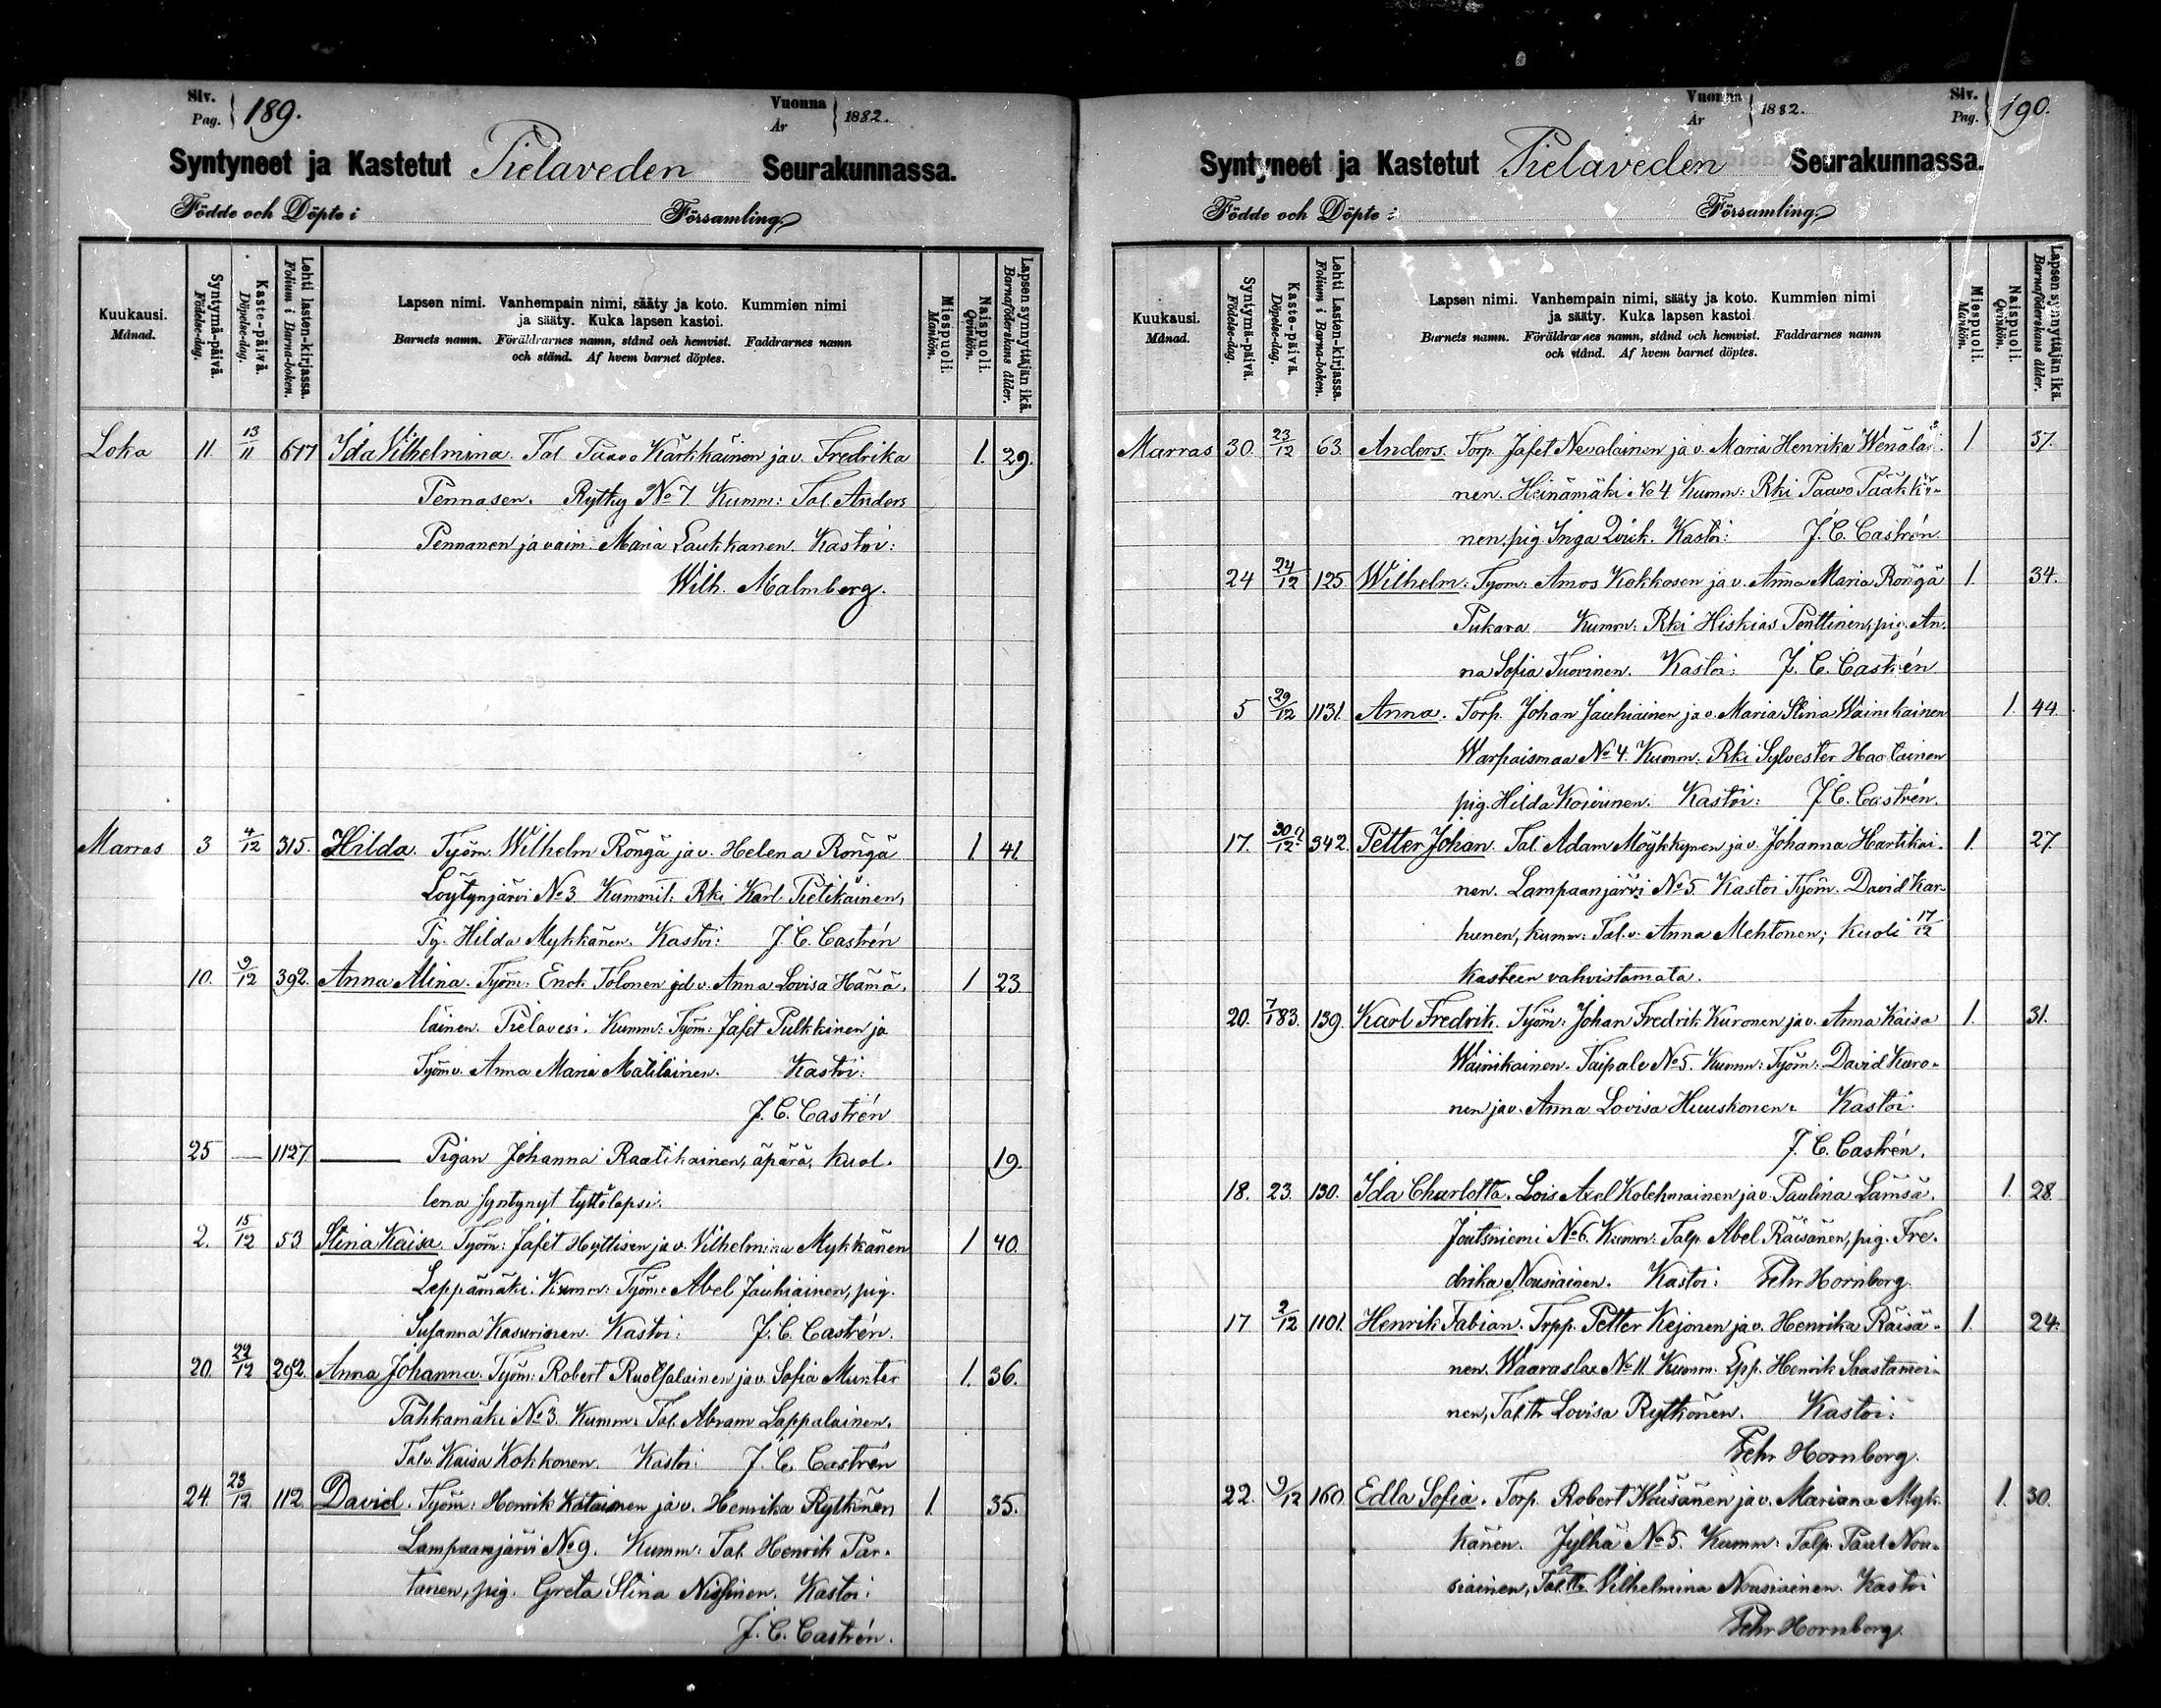 Siv. Pag. 189. Vuonna År 1882.
Syntyneet ja Kastetut Pielaveden Seurakunnassa.
Födde och Döpte i Församling.
Kuukausi. Månad. Syntymä-päivä. Födelse-dag. Kaste-päivä. Döpelse-dag. Lehti lasten-kirjassa. Folium i Barna-boken. Lapsen nimi. Vanhempain nimi, sääty ja koto. Kummien nimi ja sääty. Kuka lapsen kastoi. Barnets namn. Föräldrarnes namn, stånd och hemvist. Faddrarnes namn och stånd. Af hvem barnet döptes. Miespuoli. Mankön. Naispuoli. Qvinkön. Lapsen synnyttäjän ikä. Barnaföderskans ålder.
Loka 11. 13/11 617 Ida Vilhelmina. Tal. Paavo Kärkkäinen ja v. Fredrika 1. 29.
Pennasen. Rytky No 7. Kumm: Tal. Anders
Pennanen ja vaim. Maria Laukkanen. Kastoi:
Wilh. Malmberg.
Marras 3 4/12 315. Hilda. Työm. Wilhelm Röngä ja v. Helena Röngä 1 41.
Löytynjärvi No 3. Kummit: Rki Karl Pietikäinen,
Pg. Hilda Mykkänen. Kastoi: J. C. Castrén
10. 9/12 392. Anna Alina. Työm: Enok Tolonen ja v. Anna Lovisa Hämä- 1 23
läinen. Pielavesi. Kumm: Työm: Jafet Pulkkinen ja
Työm v. Anna Maria Matilainen. Kastoi:
J. C. Castrén
25 — 1127 — Pigan Johanna Raatikainen, äpärä, kuol- 19.
lena syntynyt tyttölapsi.
2. 15/12 53 Stina Kaisa. Työm: Jafet Hyttisen ja v. Vilhelmina Mykkänen 1 40.
Leppämäki. Kumm: Työm: Abel Jauhiainen, pig.
Susanna Kasurinen. Kastoi: J. C. Castrén.
20. 22/12 292. Anna Johanna. Työm: Robert Ruotsalainen ja v. Sofia Munter 1. 36.
Pähkamäki No 3. Kumm: Tal. Abram Lappalainen.
Tal v. Kaisa Kokkonen. Kastoi: J. C. Castrén
24. 23/12. 112. David. Työm: Henrik Katainen ja v. Henrika Rytkönen 1. 35.
Lampaanjärvi No 9. Kumm: Tal. Henrik Par-
tanen, pig. Greta Stina Nissinen. Kastoi:
J. C. Castrén.
Vuonna År 1882. Siv. Pag. 190.
Syntyneet ja Kastetut Pielaveden Seurakunnassa.
Födde och Döpte i Församling.
Kuukausi. Månad. Syntymä-päivä. Födelse-dag. Kaste-päivä. Döpelse-dag. Lehti Lasten-kirjassa. Folium i Barna-boken. Lapsen nimi. Vanhempain nimi, sääty ja koto. Kummien nimi ja sääty. Kuka lapsen kastoi Barnets namn. Föräldrarnes namn, stånd och hemvist. Faddrarnes namn och stånd. Af hvem barnet döptes. Miespuoli. Mankön. Naispuoli. Qvinkön. Lapsen synnyttäjän ikä. Barnaföderskans ålder.
Marras 30. 23/12 63. Anders. Torp. Jafet Nevalainen ja v. Maria Henrika Wenäläi- 1. 37.
nen. Heinämäki No 4. Kumm: Rki Paavo Pääkkö-
nen, pig. Inga Qvick. Kastoi: J. C. Castrén.
24 24/12 125. Wilhelm. Työm: Amos Kokkosen ja v. Anna Maria Röngä 1. 34.
Pukara. Kumm: Rki Hiskias Penttinen, pig. An-
na Sofia Tuovinen. Kastoi: J. C. Castrén
5 29/12 1131. Anna. Torp. Johan Jauhiainen ja v. Maria Stina Wainikainen 1. 44.
Warpaismaa No 4. Kumm: Rki Sylvester Haatainen
pig. Hilda Koivunen. Kastoi: J. C. Castrén.
17. 30/12? 342. Petter Johan. Tal. Adam Möykkynen ja v. Johanna Hartikai- 1. 27.
nen. Lampaanjärvi No 5. Kastoi Työm. David Kar-
hunen, kumm: Tal. v. Anna Mehtonen; kuoli 17/12
kasteen vahvistamata.
20. 7/1 83. 139. Karl Fredrik. Työm: Johan Fredrik Kuronen ja v. Anna Kaisa 1. 31.
Wäinikainen. Taipale No 5. Kumm: Työm: David Kuro-
nen ja v. Anna Lovisa Huuskonen. Kastoi.
J. C. Castrén.
18. 23. 130. Ida Charlotta. Lois Axel Kolehmainen ja v. Paulina Lämsä. 1. 28.
Joutsniemi No 6. Kumm: Talp. Abel Räisänen, pig. Fre-
drika Nousiainen. Kastoi: Fehr Hornborg.
17 2/12 1101. Henrik Fabian. Trpp. Petter Kejonen ja v. Henrika Räisä- 1. 24.
nen. Waaraslax No 11. Kumm: Lpp. Henrik Saastamoi-
nen, Tal. tr Lovisa Rytkönen. Kastoi:
Fehr Hornborg.
22. 9/12 160. Edla Sofia. Torp. Robert Waisänen ja v. Mariana Myk- 1. 30.
känen. Jylhä No 5. Kumm: Talp. Paul Nou-
siainen, Tal. tr. Vilhelmina Nousiainen. Kastoi
Fehr Hornborg.